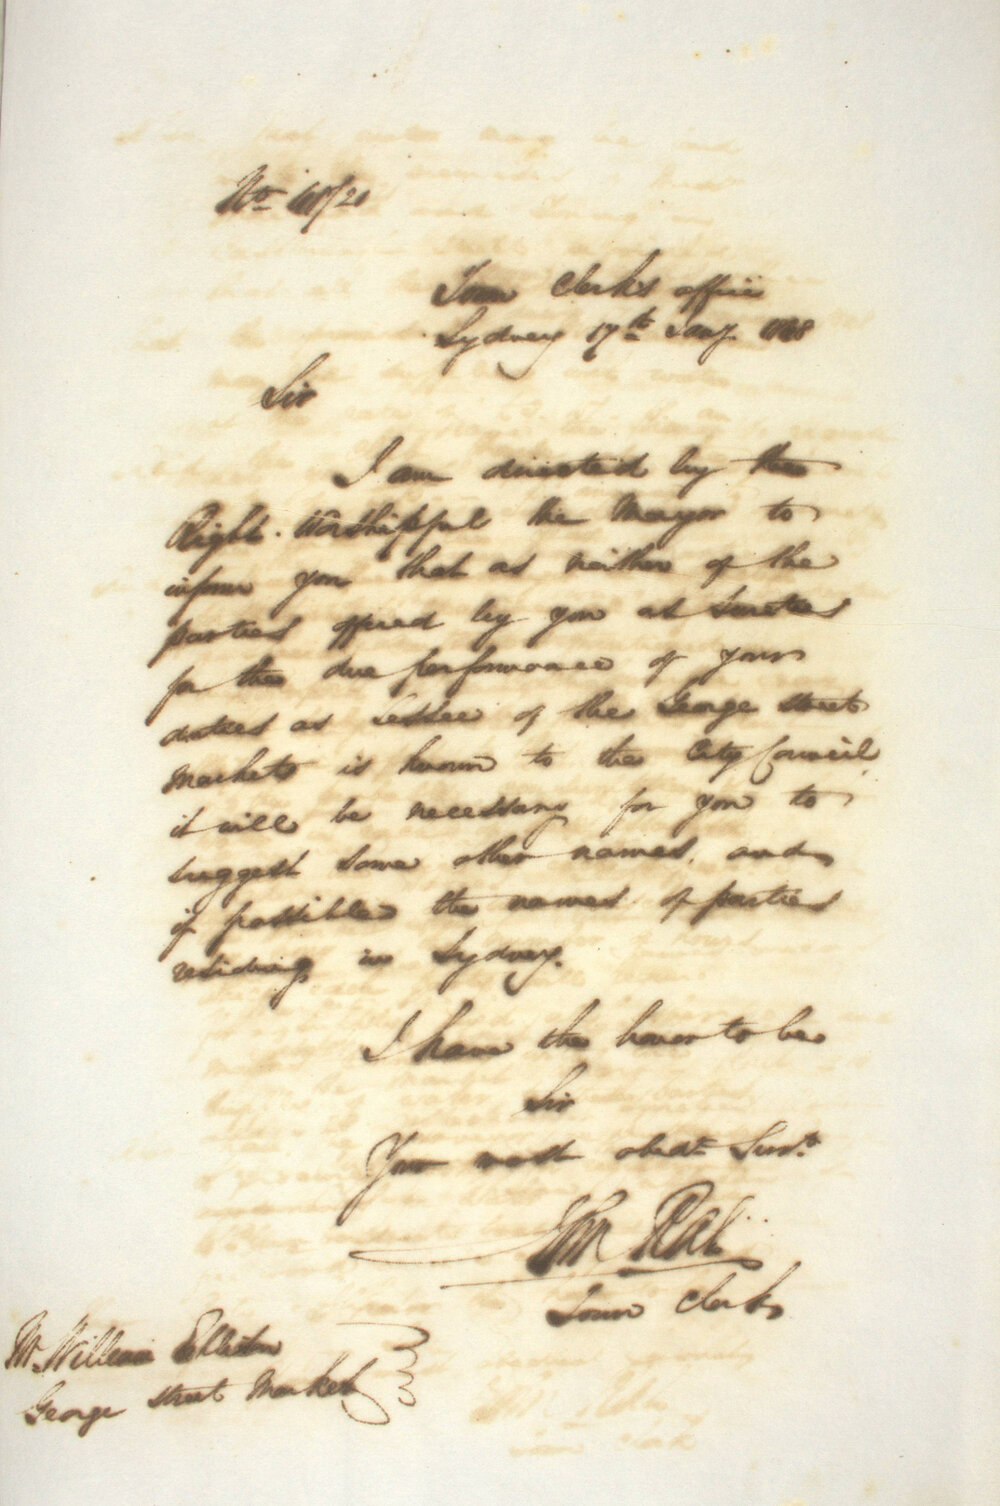 Town Clerk's office
Sydney 17th Jany. 1868
Sir
I am directed by the
Right Worshipful the Mayor to
inform you that as neither of the
parties offered by you as Sureties
for the due performance of your
duties as Lessee of the George street
Markets is known to the City Council,
it will be necessary for you to
suggest some other names, and
if possible the names of parties
residing in Sydney.
I have the honor to be
Sir
Your most obedt. Servt.
Town Clerk
Mr. William
George street Markets